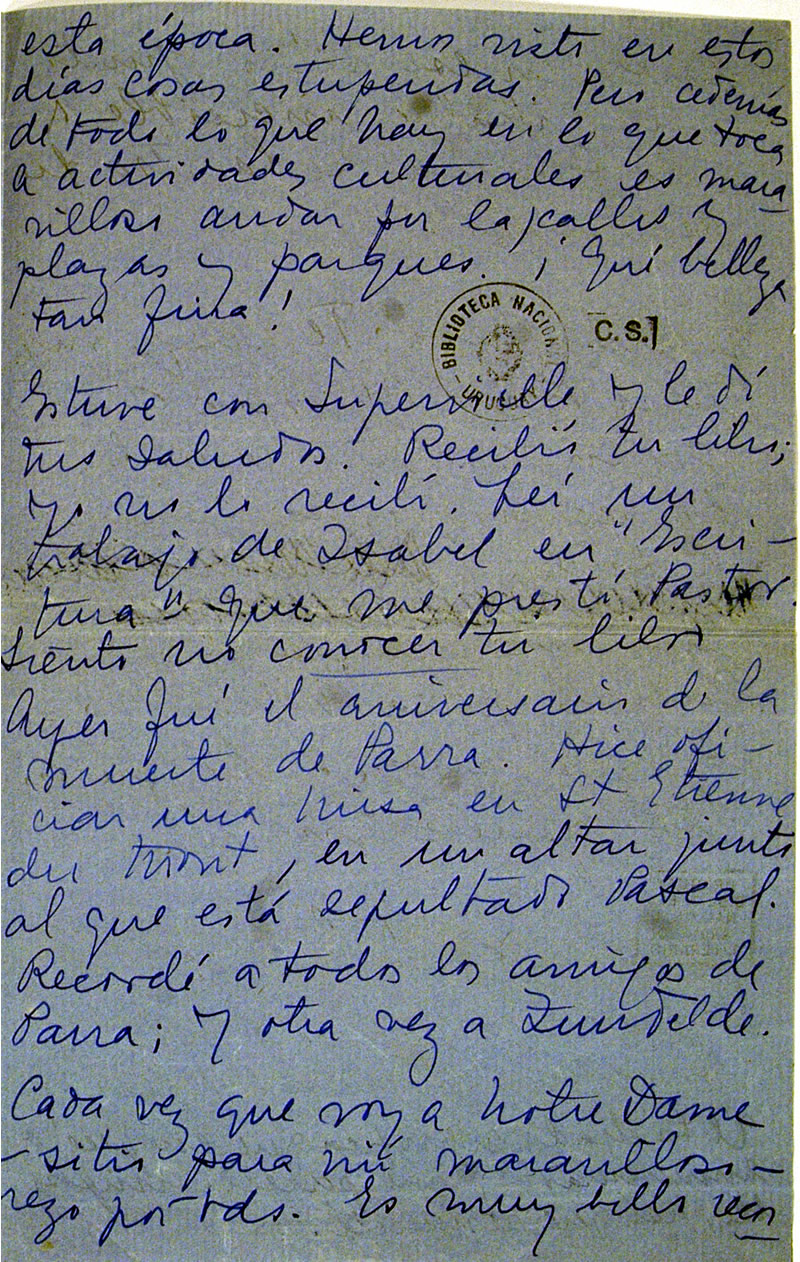 esta época. Hemos visto en estos
días cosas estupendas. Pero además
de todo lo que hay en lo que toca
a actividades culturales es mara-
villoso andar por las calles y
plazas y parques. ¡Qué belleza
tan fina!
BIBLIOTECA NACIONAL
URUGUAY
C.S.
Estuve con Supervielle y le dí
tus saludos. Recibió tu libro;
yo no lo recibí. Leí un
trabajo de Isabel en "Escri-
tura" que me prestó Pastor.
Siento no conocer tu libro
Ayer fué el aniversario de la
muerte de Parra. Hice ofi-
ciar una misa en St Etienne
du Mont, en un altar junto
al que está sepultado Pascal.
Recordé a todos los amigos de
Parra; y otra vez a Zunilelde.
Cada vez que voy a Notre Dame
-sitio para mí maravilloso-
rezo por tds. Es muy bello ver